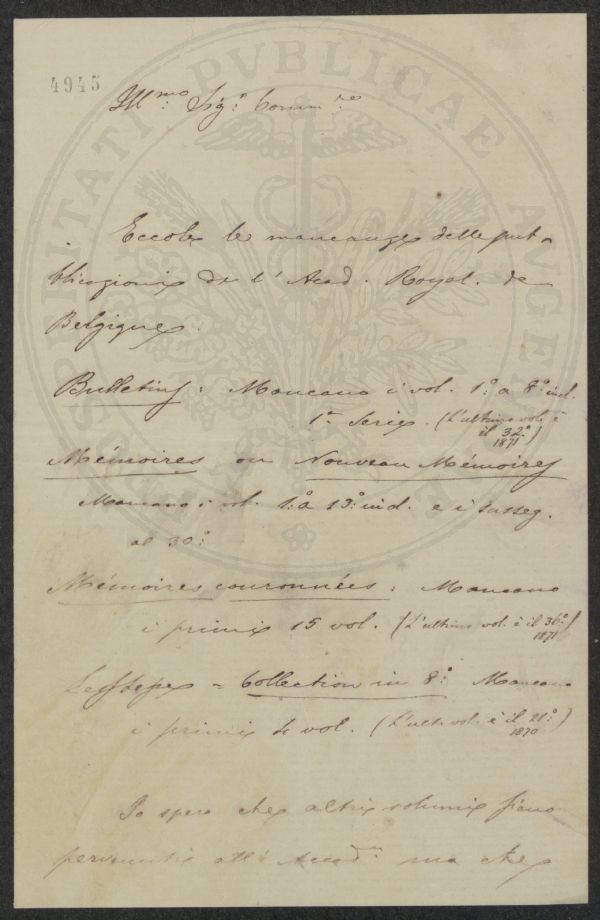 4945
Ill.mo Sig.r Comm.re
Eccole le mancanze delle pub-
blicazioni de l'Acad. Royal. de
Belgique.
Bulletins: Mancano i vol. 1.º a 8.º incl.
1re Serie. (L'ultimo vol. è
il 32.º)
1871
Mémoires ou Nouveau Mémoires
Mancano i vol. 1.º a 13.º incl. e i susseg.
al 30.º
Mémoires couronnées: Mancano
i primi 15 vol. (L'ultimo vol. è il 36.º)
1871
= Collection in 8.º Mancano
i primi 4 vol. (L'ult. vol. è il 21.º)
1870
Io spero che altri volumi siano
pervenuti all' Accad. ma che
HOSPITATI PVBLICAE AVGE